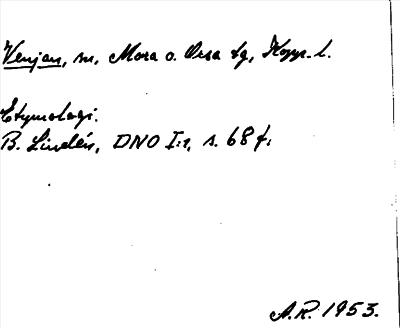 Venjan, sn, Mora o. Orsa tg, Kopp. l.
Etymologi.
B. Lindén, DNO I:1, s. 68 f.
A.R. 1953.